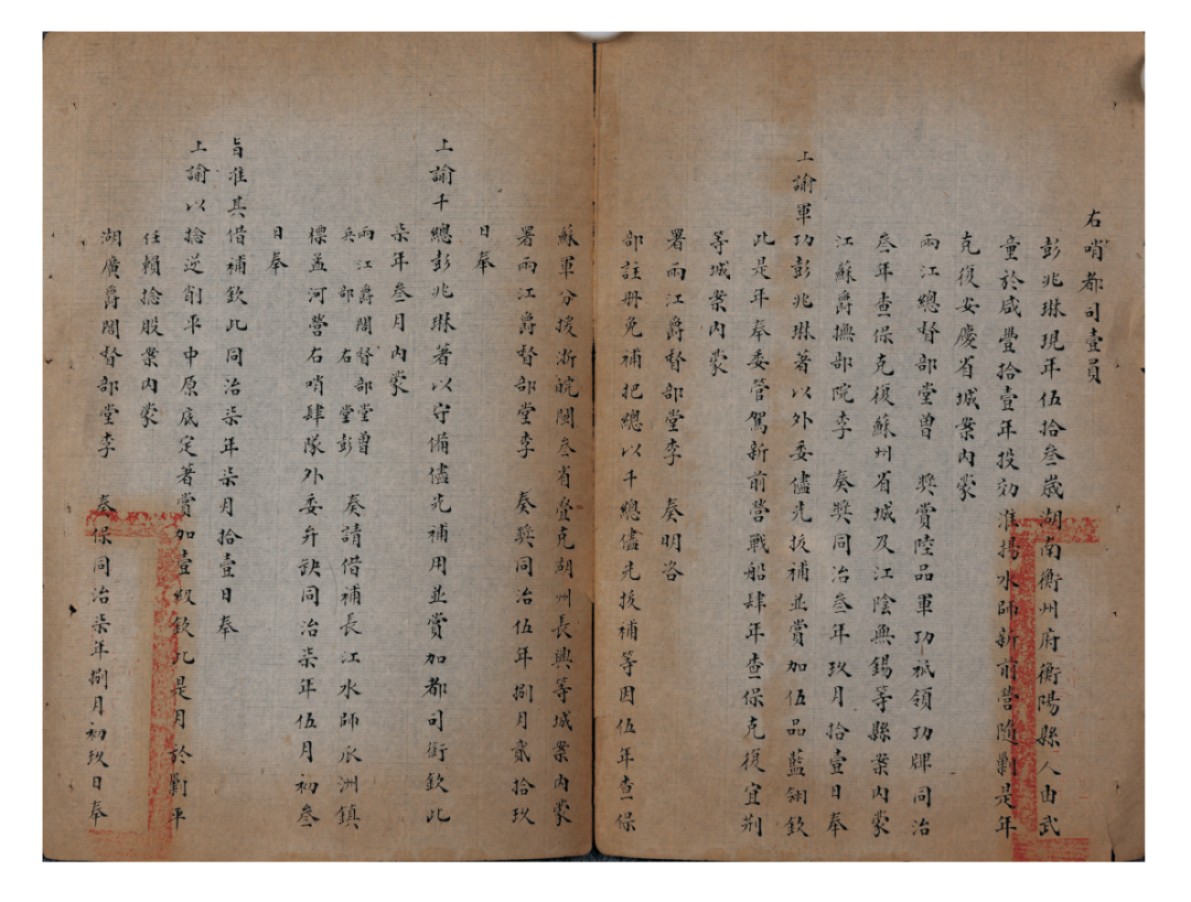 右哨都司壹員
彭兆琳現年伍拾叁歲湖南衡州府衡陽縣人由武
童於咸豐拾壹年投効淮揚水師新前營隨剿是年
克復安慶省城案內蒙
兩江總督部堂曾　奬賞陸品軍功祗領功牌同治
叁年查保克復蘇州省城及江陰無錫等縣案內蒙
江蘇爵撫部院李　奏奬同治叁年玖月拾壹日奉
上諭軍功彭兆琳著以外委儘先拔補並賞加伍品藍翎欽
此是年奉委管駕新前營戰船肆年查保克復宜荆
等城案內蒙
署兩江爵督部堂李　奏明咨
部註册免補把總以千總儘先拔補等因伍年查保
蘇軍分援浙皖閩叁省疊克湖州長興等城案內蒙
署兩江爵督部堂李　奏奬同治伍年捌月貳拾玖
日奉
上諭千總彭兆琳著以守備儘先補用並賞加都司銜欽此
柒年叁月內蒙
兩江爵閣督部堂曾
兵部右堂彭　奏請借補長江水師瓜洲鎮
標孟河營右哨肆隊外委弁缺同治柒年伍月初叁
日奉
旨准其借補欽此同治柒年柒月拾壹日奉
上諭以捻逆削平中原底定著賞加壹級欽此是月於剿平
任賴捻股案內蒙
湖廣爵閣督部堂李　奏保同治柒年捌月初玖日奉